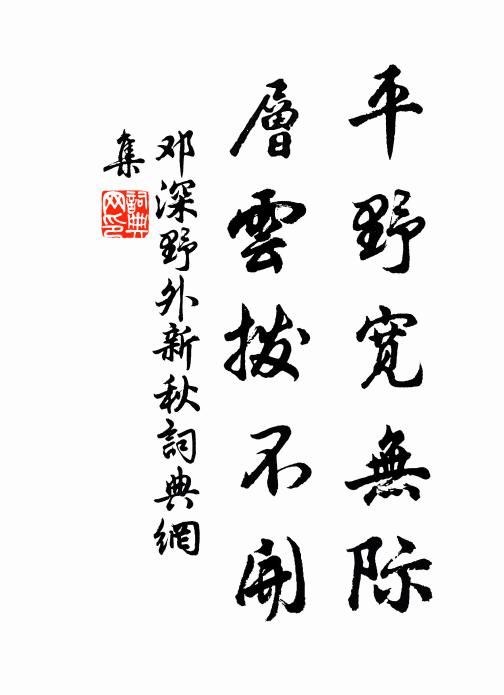 平野寬無际
層雲拨不開
邓深野外新秋詞典網
集
詞典
网印